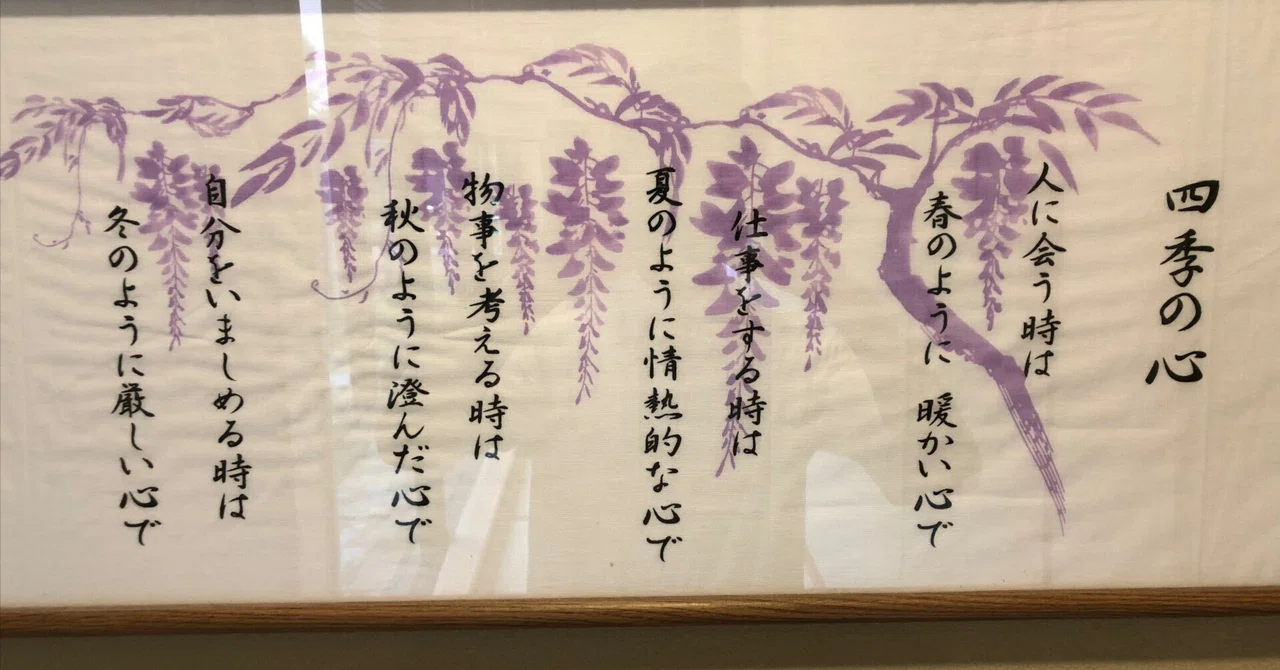 四季の心
人に会う時は
春のように 暖かい心で
仕事をする時は
夏のように情熱的な心で
物事を考える時は
秋のように澄んだ心で
自分をいましめる時は
冬のように厳しい心で